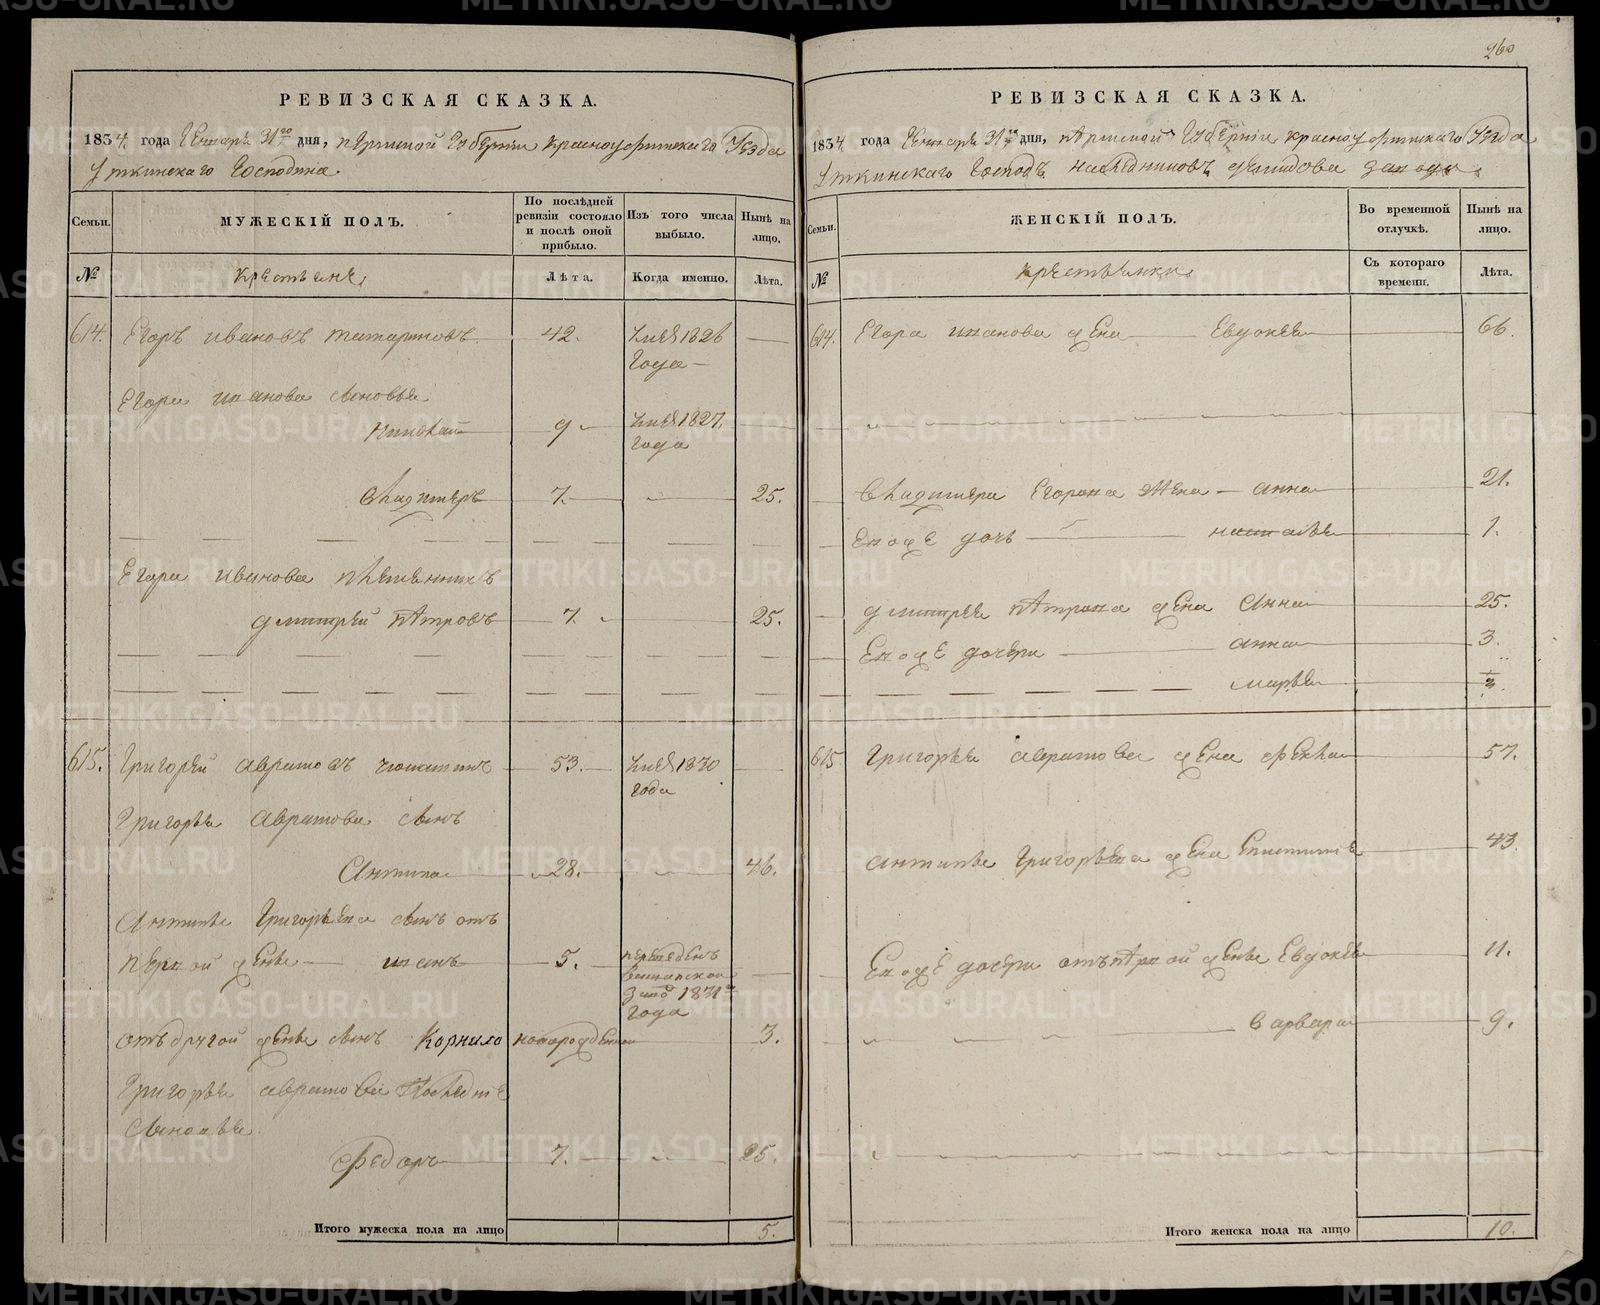 260
РЕВИЗСКАЯ СКАЗКА.
1834 года Генваря 31го дня, Пермской Губернiи Красноуфимскаго Уезда
Уткинскаго Господина
Семьи.
МУЖЕСКIЙ ПОЛЪ.
По послѣдней ревизiи состояло и послѣ оной прибыло.
Изъ того числа выбыло.
Нынѣ на лицо.
№
Крестьяне
Лѣта.
Когда именно.
Лѣта.
614. Егоръ Ивановъ 42. 1826 года
Егора Иванова сыновья
Николай 9 1827 года
Владимеръ 7. 25.
Егора Иванова племенникъ
Дмитрей Петровъ 7. 25.
615. Григорей Аврамовъ 53. 1830 года
Григорья Аврамова сынъ
Антипа 28. 46.
Антипы Григорьева сынъ отъ
первой жены Иванъ 5. переведенъ
1831го года
отъ другой жены сынъ Корнило новорожденной 3.
Григорья Аврамова
сыновья
Федоръ 7. 25.
Итого мужеска пола на лицо 5.
РЕВИЗСКАЯ СКАЗКА.
1834 года Генваря 31го дня, Пермской Губернiи Красноуфимскаго Уезда
Уткинскаго Господъ наследниковъ Демидова завода
Семьи.
ЖЕНСКIЙ ПОЛЪ.
Во временной отлучкѣ.
Нынѣ на лицо.
№
Крестьянки
Съ котораго времени.
Лѣта.
614. Егора Иванова жена Евдокея 66.
Владимера Егорова жена Анна 21.
Ево же дочь Наталья 1.
Дмитрея Петрова жена Анна 25.
Ево же дочери Анна 3.
Марья
615 Григорья Аврамова жена Фекла 57.
Антипы Григорьева жена 43.
Ево же дочери отъ первой жены Евдокея 11.
Варвара 9.
Итого женска пола на лицо 10.
METRIKI.GASO-URAL.RU